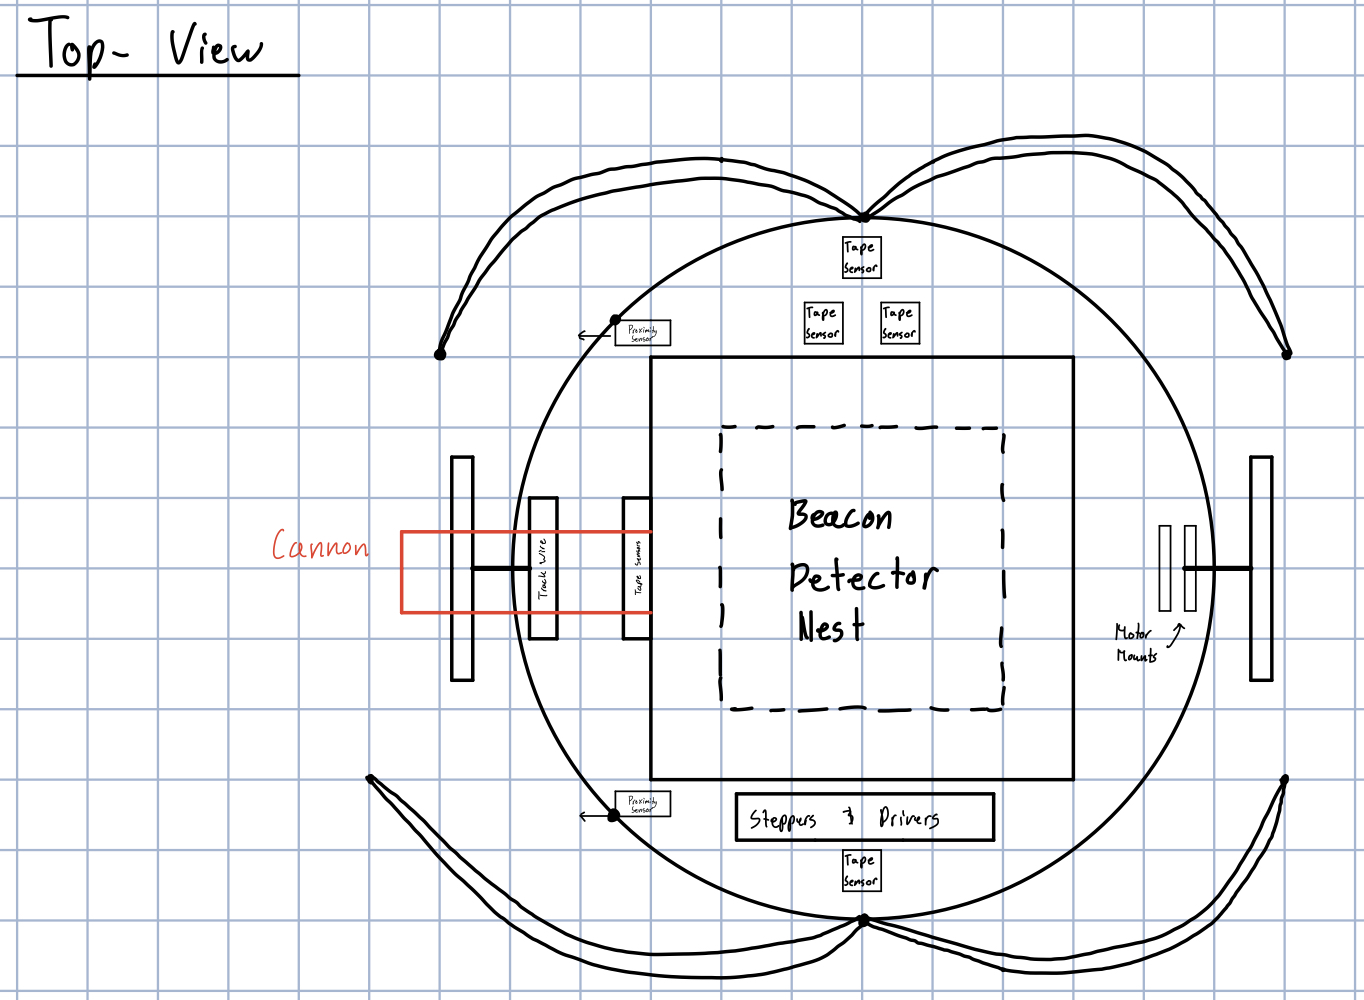 Top- View
Tape
Sensor
Tape
Sensor
Tape
Sensor
Proximity
Sensor
Cannon
Track Wire
Tape Sensors
Beacon
Detector
Nest
Motor
Mounts
Proximity
Sensor
Steppers & Drivers
Tape
Sensor